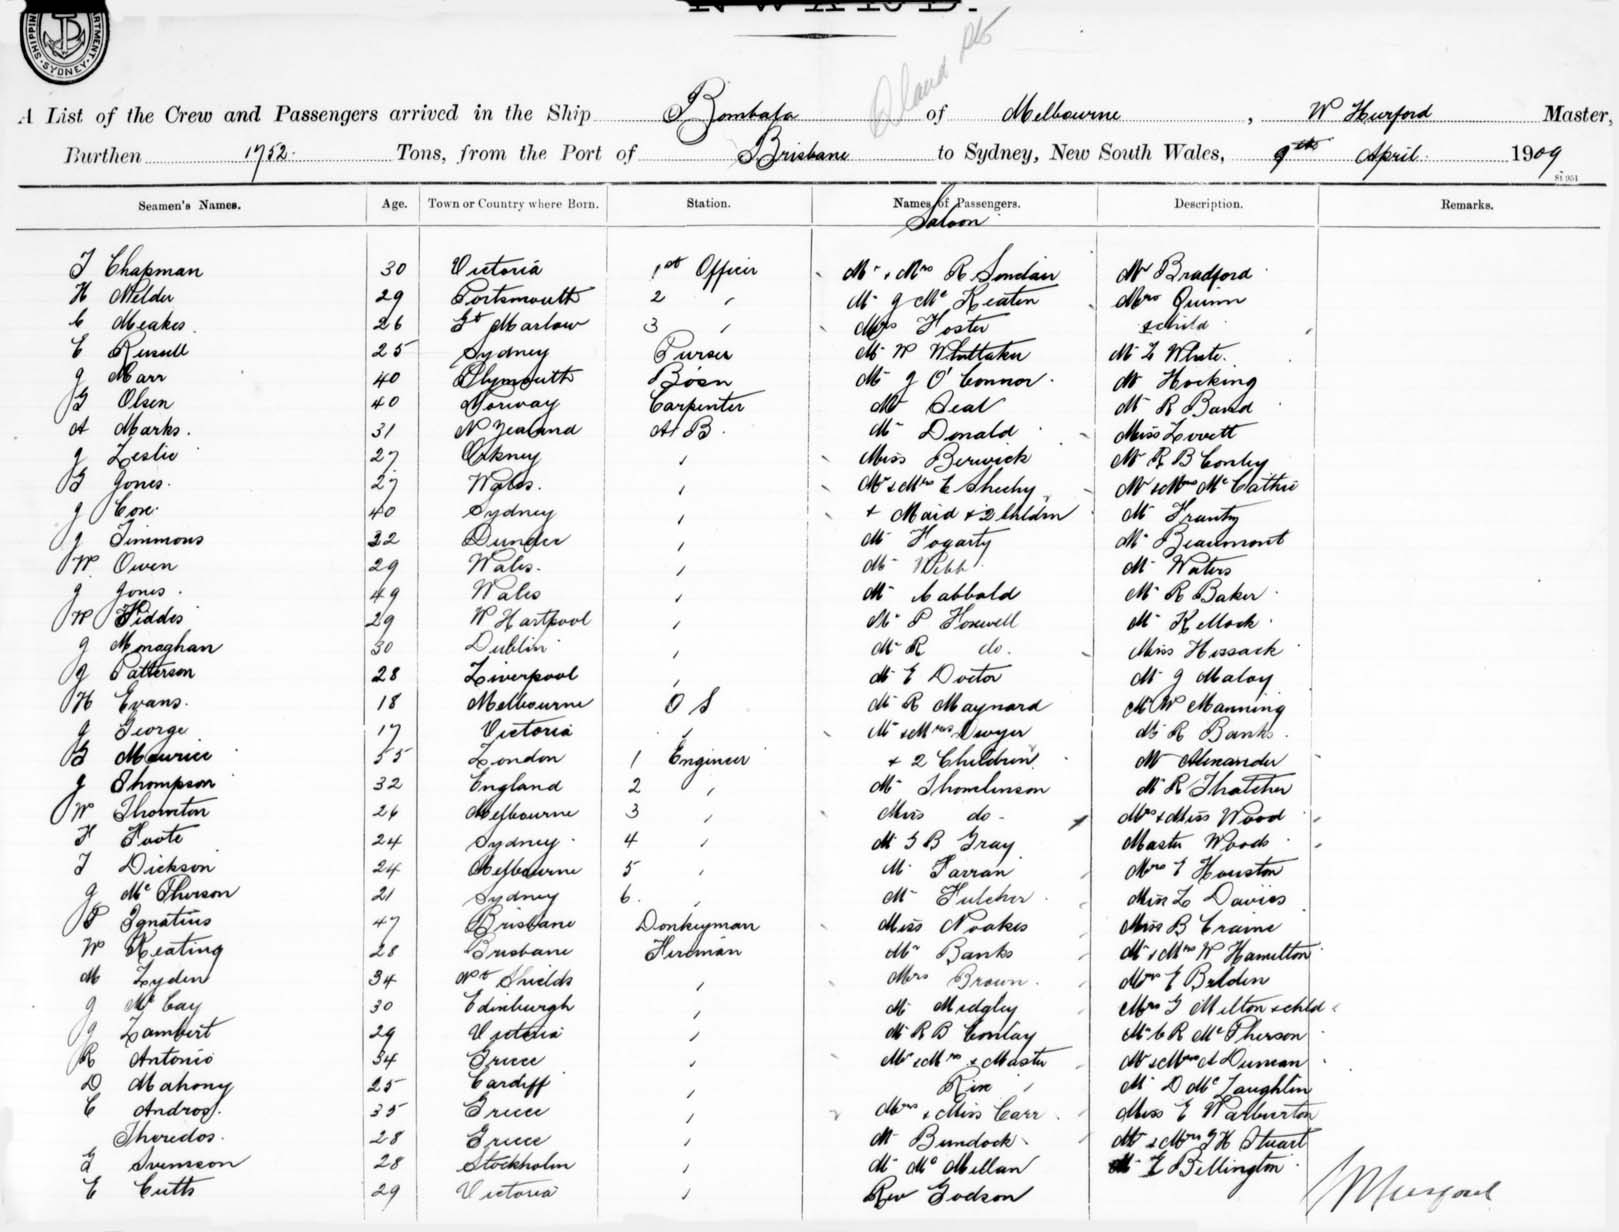 SHIPPING DEPARTMENT. SYDNEY.
A List of the Crew and Passengers arrived in the Ship Bombala of Melbourne, W Hurford Master,
Burthen 1752 Tons, from the Port of Brisbane to Sydney, New South Wales, 9th April 1909
Seamen's Names. Age. Town or Country where Born. Station. Names of Passengers. Description. Remarks.
Saloon
T Chapman 30 Victoria 1st Officer Mr & Mrs R Sinclair Mr Bradford
H Melder 29 Portsmouth 2 " Mr J Mc Keaten Mrs Quinn
C Meakes 26 Gt Marlow 3 " Mrs Foster & child
E Russell 25 Sydney Purser Mr W Whittaker Mr L White
J Marr 40 Plymouth Bosn Mr J O'Connor Mr Hocking
G Olsen 40 Norway Carpenter Mr Seal Mr R Band
A Marks 31 N Zealand A B Mr Donald Miss Lovett
J Leslie 27 Orkney " Miss Berwick Mr R B Conley
G Jones 27 Wales " Mr & Mrs E Sheehy Mr & Mrs McCathie
J Cox 40 Sydney " & Maid & 2 Chldrn Mr
J Timmons 32 Dundee " Mr Fogarty Mr Beaumont
W Owen 29 Wales " Mr Webb Mr Waters
J Jones 49 Wales " Mr Cabbald Mr R Baker
W Fiddis 29 W Hartpool " Mr P Foxwell Mr Kellock
J Monaghan 30 Dublin " Mr R do. Miss Hossack
J Patterson 28 Liverpool " Mr E Doctor Mr J Maloy
H Evans 18 Melbourne O S Mr R Maynard Mr W Manning
J George 17 Victoria " Mr & Mrs Dwyer Mr R Banks
G Maurice 55 London 1 Engineer & 2 Children Mr Alexander
J Thompson 32 England 2 " Mr Thomlinson Mr R Thatcher
W Thornton 26 Melbourne 3 " Miss do Mrs & Miss Wood
F Foote 24 Sydney 4 " Mr G B Gray Master Woods
T Dickson 24 Melbourne 5 " Mr Farran Mrs E Houston
J McPherson 21 Sydney 6 " Mr Fulcher Miss L Davies
P Ignatius 47 Brisbane Donkeyman Miss Noakes Miss B Craine
W Keating 28 Brisbane Fireman Mr Banks Mr & Mrs W Hamilton
M Lyden 34 Nth Shields " Mrs Brown Mrs E Belden
J McCay 30 Edinburgh " Mr Midgley Mrs G Milton & chld
J Lambert 29 Victoria " Mr R B Conlay Mr C R McPherson
R Antonio 34 Greece " Mr & Mrs & Master Mr & Mrs A Duncan
D Mahony 25 Cardiff " Rix Mr D McLaughlin
C Andros 35 Greece " Mrs & Miss Carr Miss E Warburton
Theredos 28 Greece " Mr Bundock Mr & Mrs G H Stuart
G Svensson 28 Stockholm " Mr McMillan Mr E Billington
E Cutts 29 Victoria " Rev Godson W Hurford